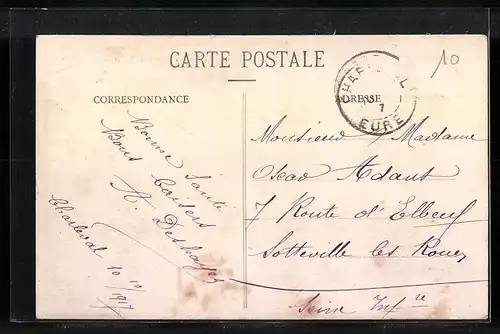 CARTE POSTALE
10
CORRESPONDANCE
ADRESSE
EURE
Bonne Santé
Bons Baisers
A. Deshayes
Charleval 10 10/1917
Monsieur Madame
Oscar Adans
7 Route d'Elbeuf
Sotteville les Rouen
Seine Infre